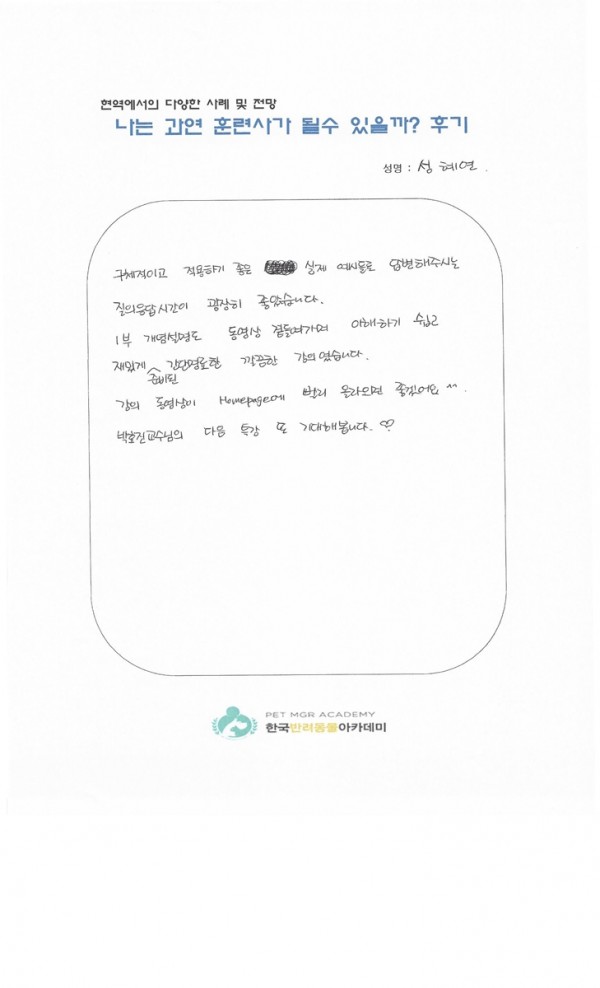 현역에서의 다양한 사례 및 전망
나는 과연 훈련사가 될수 있을까? 후기
성명 : 성혜연.
구체적이고 적용하기 좋은 실제 예시들로 답변해주시는
질의응답시간이 굉장히 좋았습니다.
1부 개념설명도 동영상 곁들여가며 이해하기 쉽고
재밌게 준비된 간단명료한 깔끔한 강의였습니다.
강의 동영상이 Homepage에 빨리 올라오면 좋겠어요 ^^.
박효진교수님의 다음 특강 또 기대해봅니다. ♡
PET MGR ACADEMY
한국반려동물아카데미